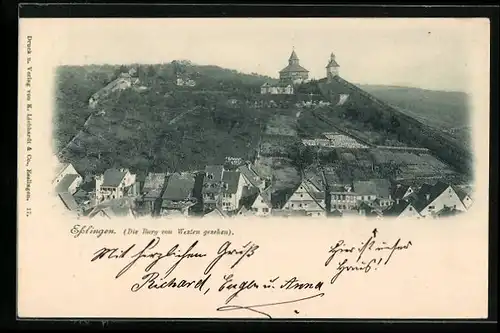 Druck u. Verlag von K. Liebhardt & Co., Esslingen. 17.
Eßlingen. (Die Burg von Westen gesehen).
Mit herzlichen Gruß
Richard, Eugen u. Anna
Hier ist unser
Haus!